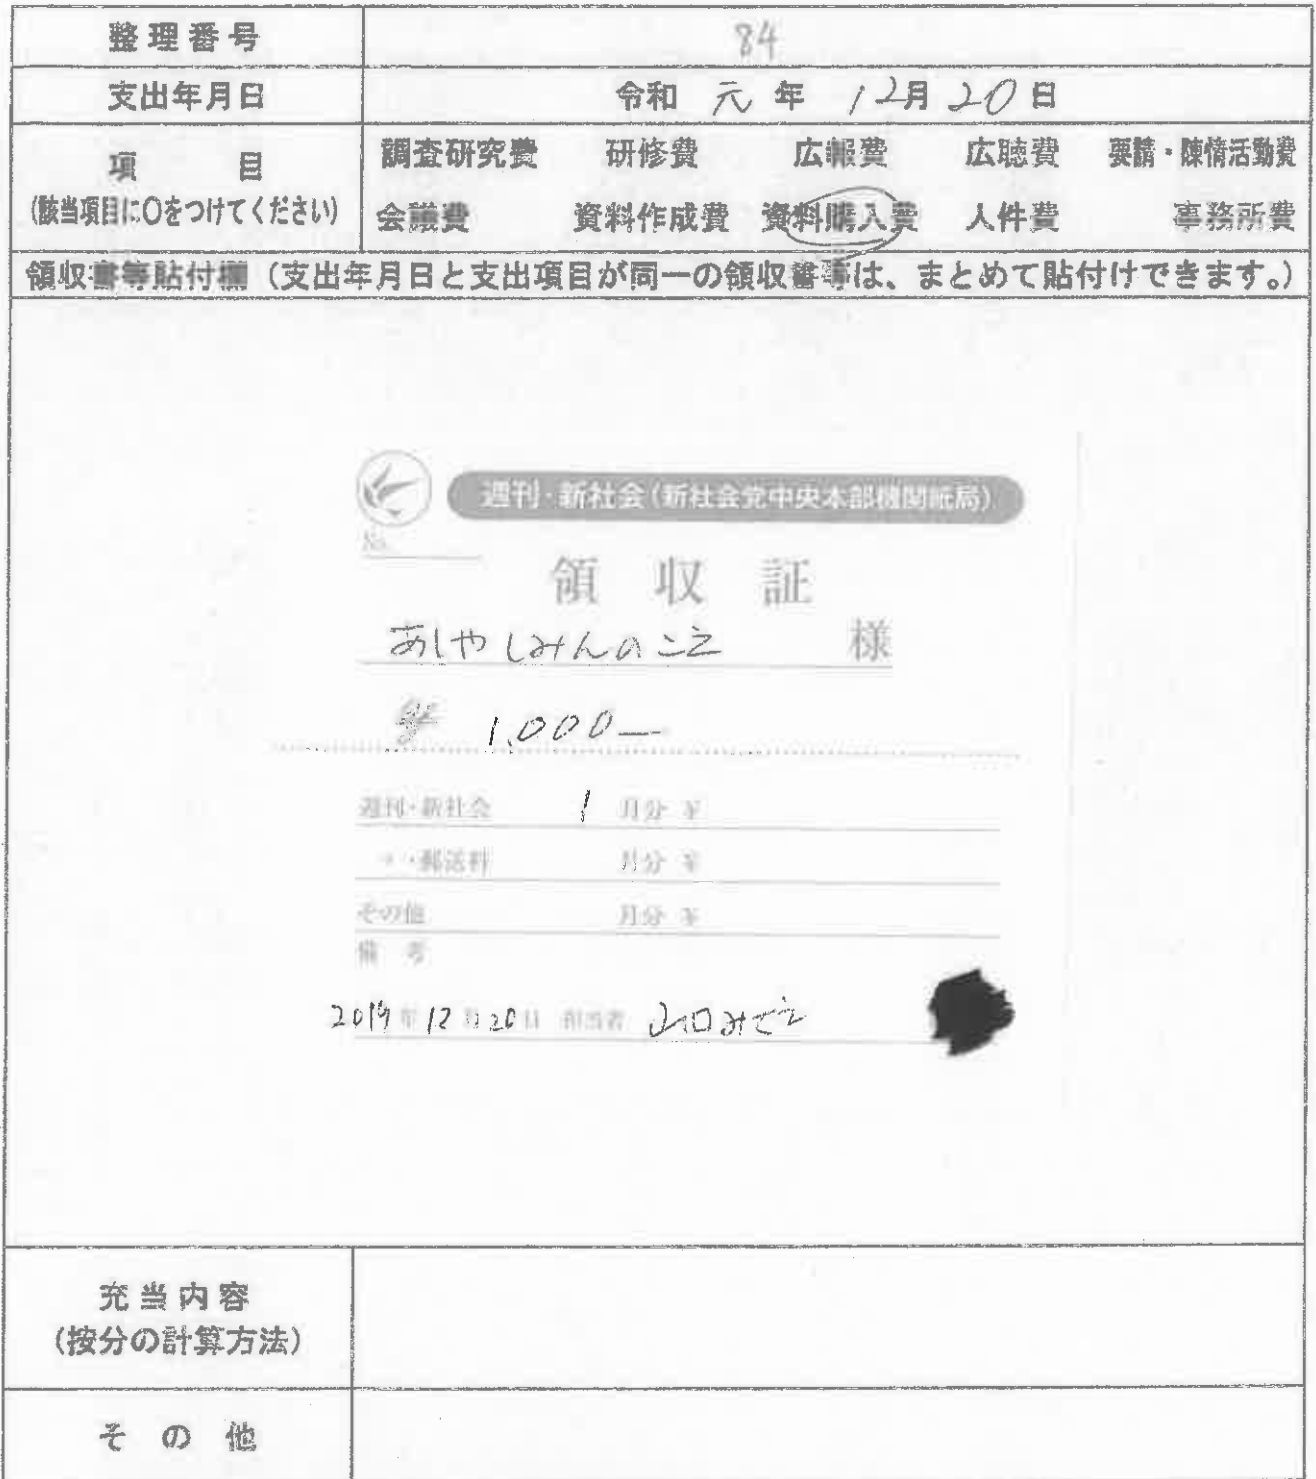 整理番号 84
支出年月日 令和 元 年 12月 20日
項目 調査研究費 研修費 広報費 広聴費 要請・陳情活動費
(該当項目に○をつけてください) 会議費 資料作成費 資料購入費 人件費 事務所費
領収書等貼付欄（支出年月日と支出項目が同一の領収書等は、まとめて貼付けできます。）
週刊・新社会(新社会党中央本部機関紙局)
No.
領収証
あしやしみんのこえ 様
1,000―
週刊・新社会 1 月分 ¥
〃・郵送料 月分 ¥
その他 月分 ¥
備考
2019年12月20日 担当者 山口みさえ
充当内容
(按分の計算方法)
その他